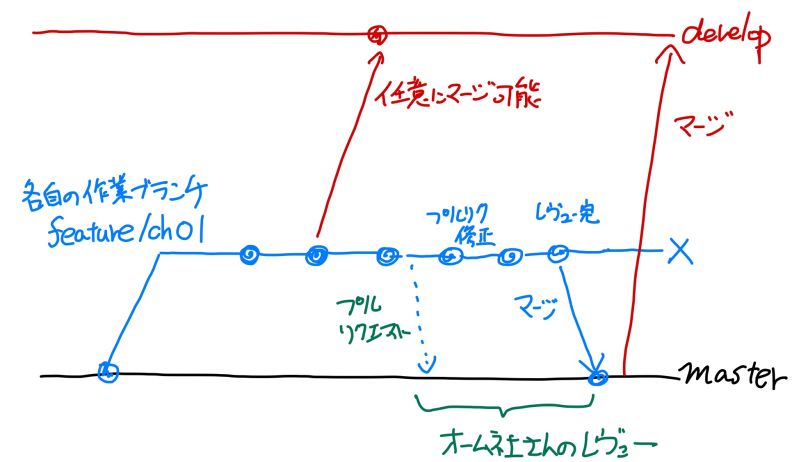 develop
任意にマージ可能
マージ
各自の作業ブランチ
feature/ch01
プルリク
修正
レヴュー完
プル
リクエスト
マージ
master
オーム社さんのレヴュー